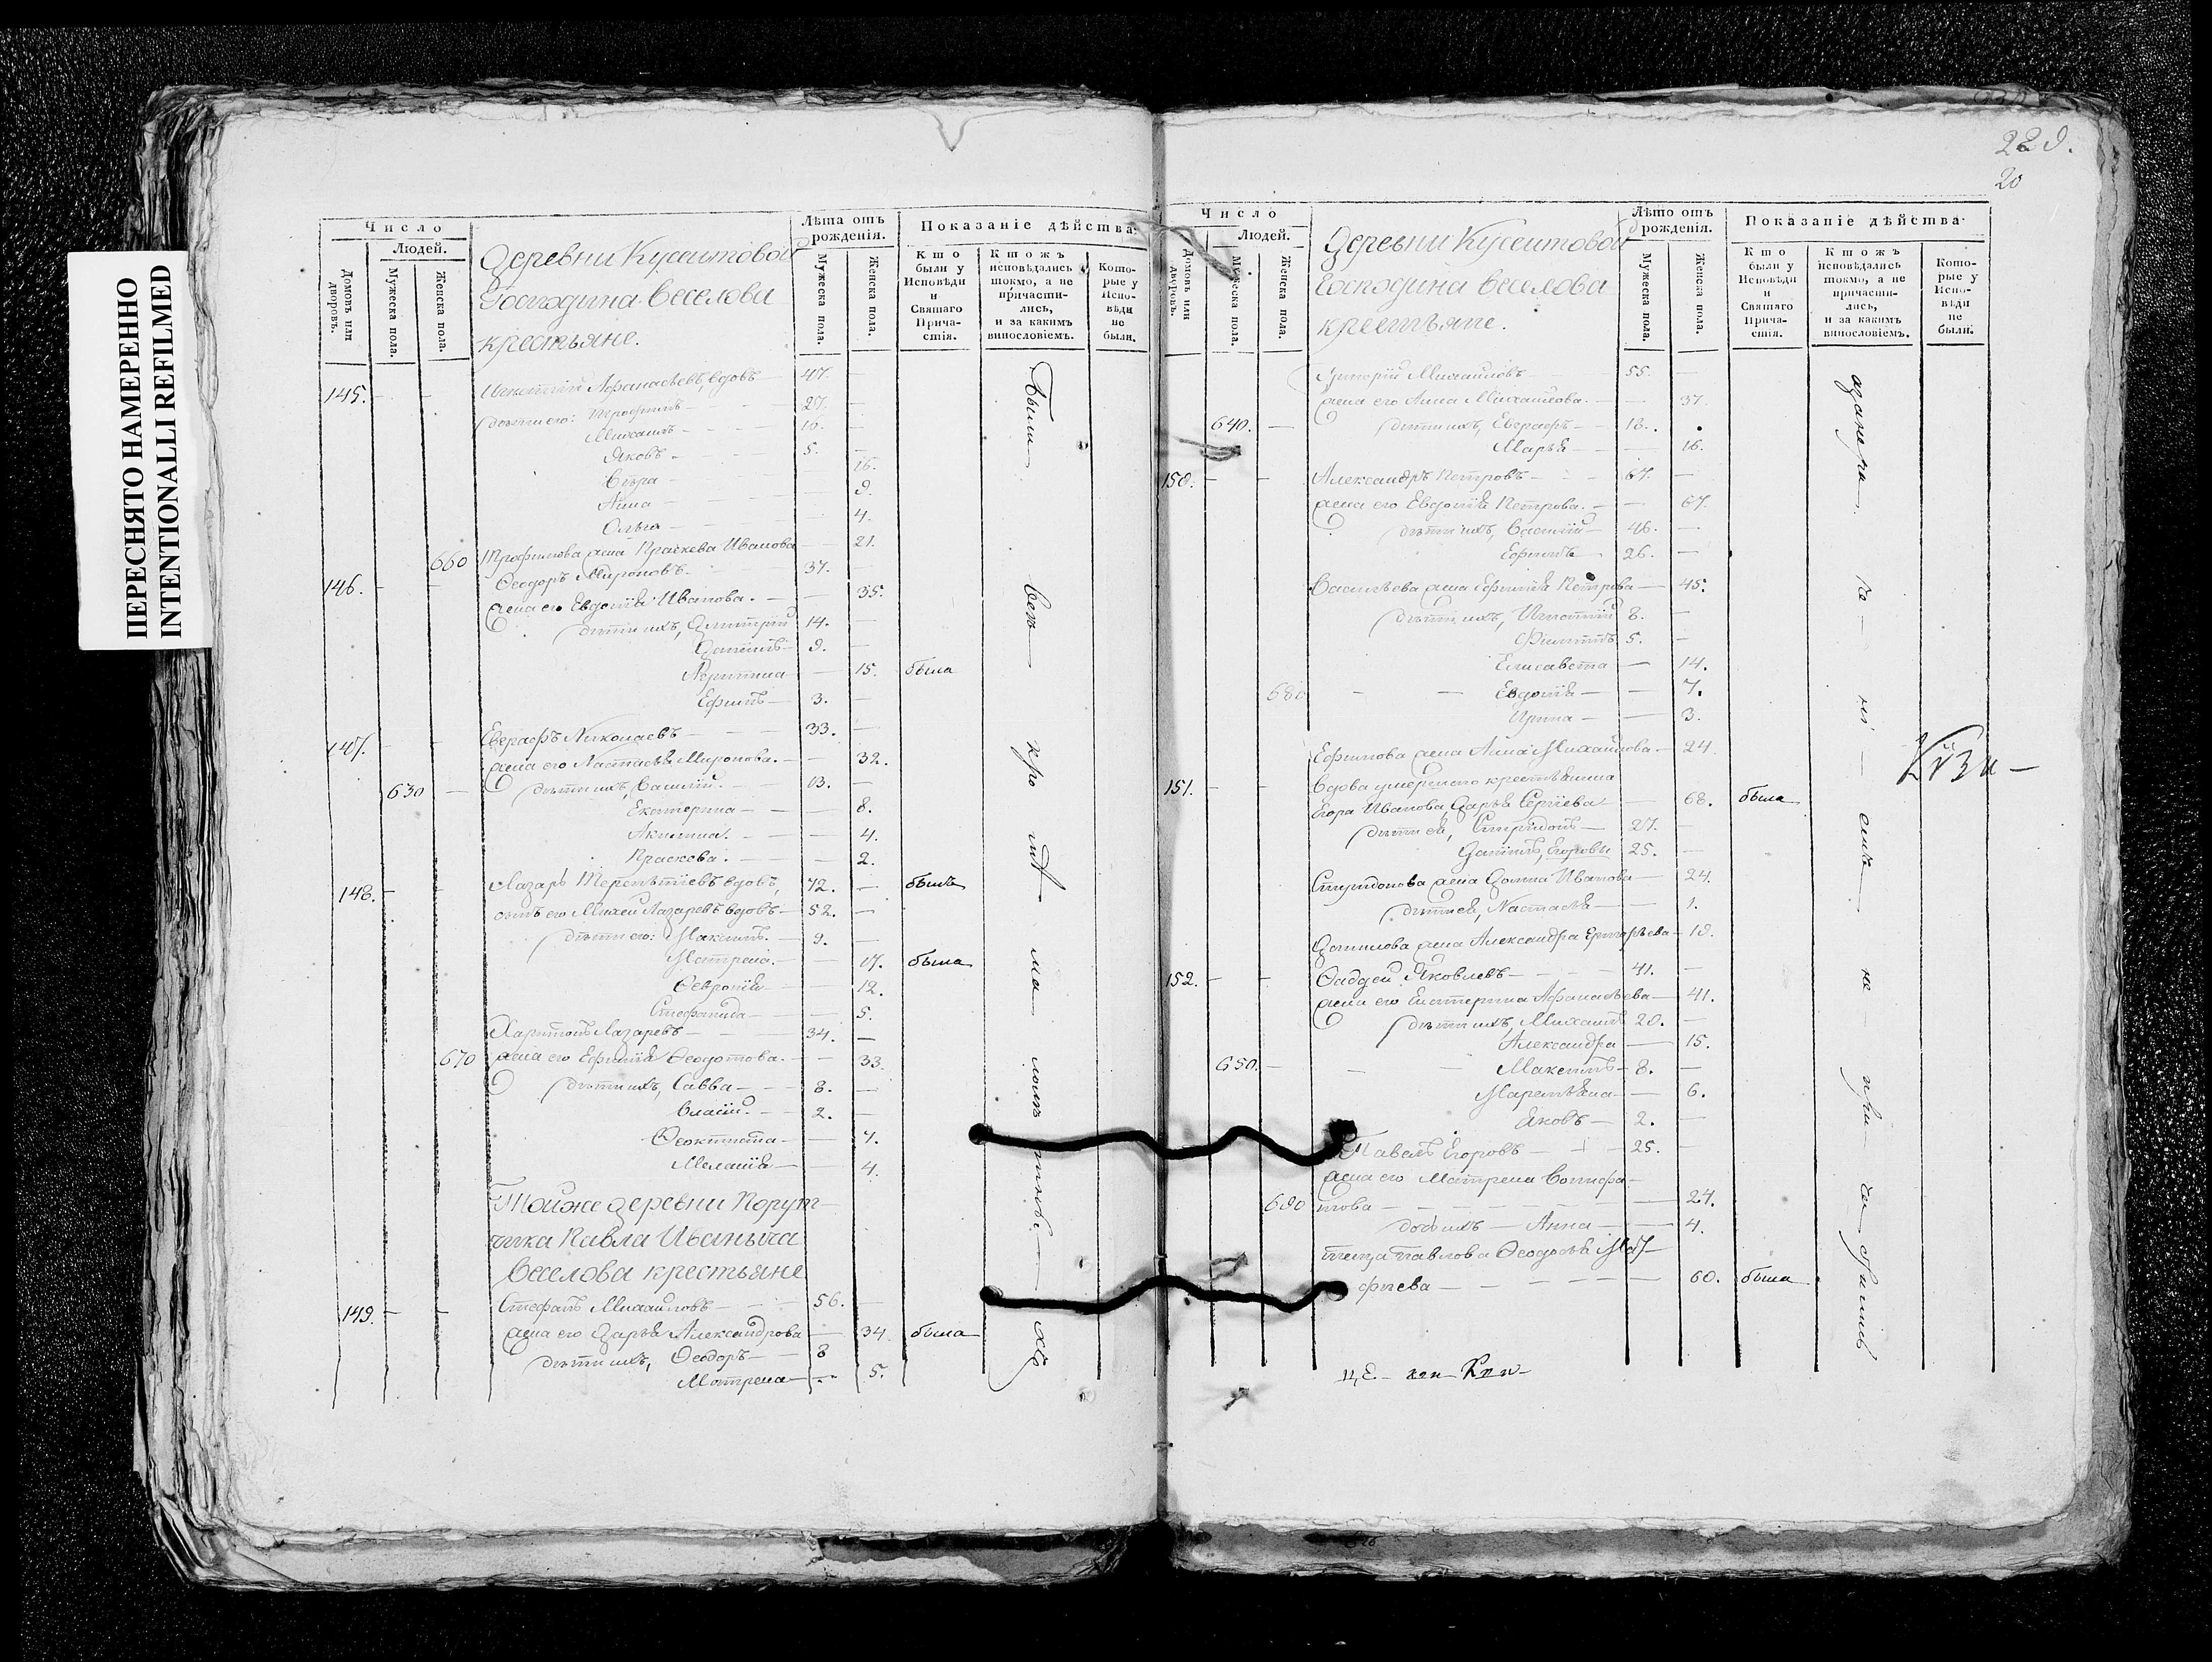 ПЕРЕСНЯТО НАМЕРЕННО
INTENTIONALLI REFILMED
Число
Людей.
Домовъ или дворовъ.
Мужеска пола.
Женска пола.
Деревни Кусеитовой
Господина Веселова
крестьяне.
Лѣта отъ рожденія.
Мужеска пола.
Женска пола.
Показаніе дѣйства.
Кто были у Исповѣди и Святаго Причастія.
Ктожъ исповѣдались токмо, а не причастились, и за какимъ винословіемъ.
Которые у Исповѣди не были.
145. Игнатій Афанасьевъ, вдовъ 47.
дѣти его: Трофимъ 27.
Михаилъ 10.
Яковъ 5.
Вѣра 16.
Анна 9.
Ольга 4.
660 Трофимова жена Праскева Иванова 21.
146. Ѳеодоръ Мироновъ 37.
жена его Евдокія Иванова. 35.
дѣти ихъ, Димитрій 14.
Даніилъ 9.
15. была
Ефимъ 3.
147. Евграфъ Николаевъ 33.
жена его Настасья Миронова. 32.
630 дѣти ихъ, Василій. 13.
Екатерина 8.
Акилина. 4.
Праскева. 2.
148. Лазарь Терентіевъ вдовъ, 72. былъ
сынъ его Михей Лазаревъ вдовъ 52.
дѣти его: Максимъ. 9.
Матрена. 17. была
Ѳевронія 12.
Стефанида 5.
Харитонъ Лазаревъ 34.
670 жена его Ефимія Ѳеодотова. 33.
дѣти ихъ, Савва 8.
Власій. 2.
Ѳеоктиста 7.
Меланія 4.
Тойже деревни Порут-
чика Павла Иваныча
Веселова крестьяне
149. Стефанъ Михаиловъ 56.
жена его Дарья Александрова 34. была
дѣти ихъ, Ѳеодоръ 8
Матрена 5.
Были
229.
20
Число
Людей.
Домовъ или дворовъ.
Мужеска пола.
Женска пола.
Деревни Кусеитовой
Господина Веселова
крестьяне.
Лѣто отъ рожденія.
Мужеска пола.
Женска пола.
Показаніе дѣйства.
Кто были у Исповѣди и Святаго Причастія.
Ктожъ исповѣдались токмо, а не причастились, и за какимъ винословіемъ.
Которые у Исповѣди не были.
Григорій Михаиловъ 55.
жена его Анна Михаилова. 37.
640. дѣти ихъ, Евграфъ 18.
Марья 16.
150. Александръ Петровъ 67.
жена его Евдокія Петрова. 67.
дѣти ихъ, Василій 46.
Ефимъ 26.
Васильева жена Ефимія Петрова 45.
дѣти ихъ, Игнатій 8.
Филиппъ 5.
Елисавета 14.
680 Евдокія 7.
Ирина 3.
Ефимова жена Анна Михаилова 24.
151. Вдова умершаго крестьянина
Егора Иванова, Дарья Сергіева 68. была
дѣти ей, Спиридонъ 27.
Даніилъ, Егоровы 25.
Спиридонова жена Домна Иванова 24.
дѣти ея, Настасья 1.
Данилова жена Александра Григорьева 19.
152. Ѳаддей Яковлевъ 41.
жена его Екатерина Афанасьева 41.
дѣти ихъ, Михаилъ 20.
Александра 15.
650. Максимъ 8.
Маремьяна 6.
Яковъ 2.
Павелъ Егоровъ 25.
жена его Матрена Бонифа-
690 това 24.
дочь ихъ Анна 4.
теща Павлова Ѳеодосья
фиева 60. была